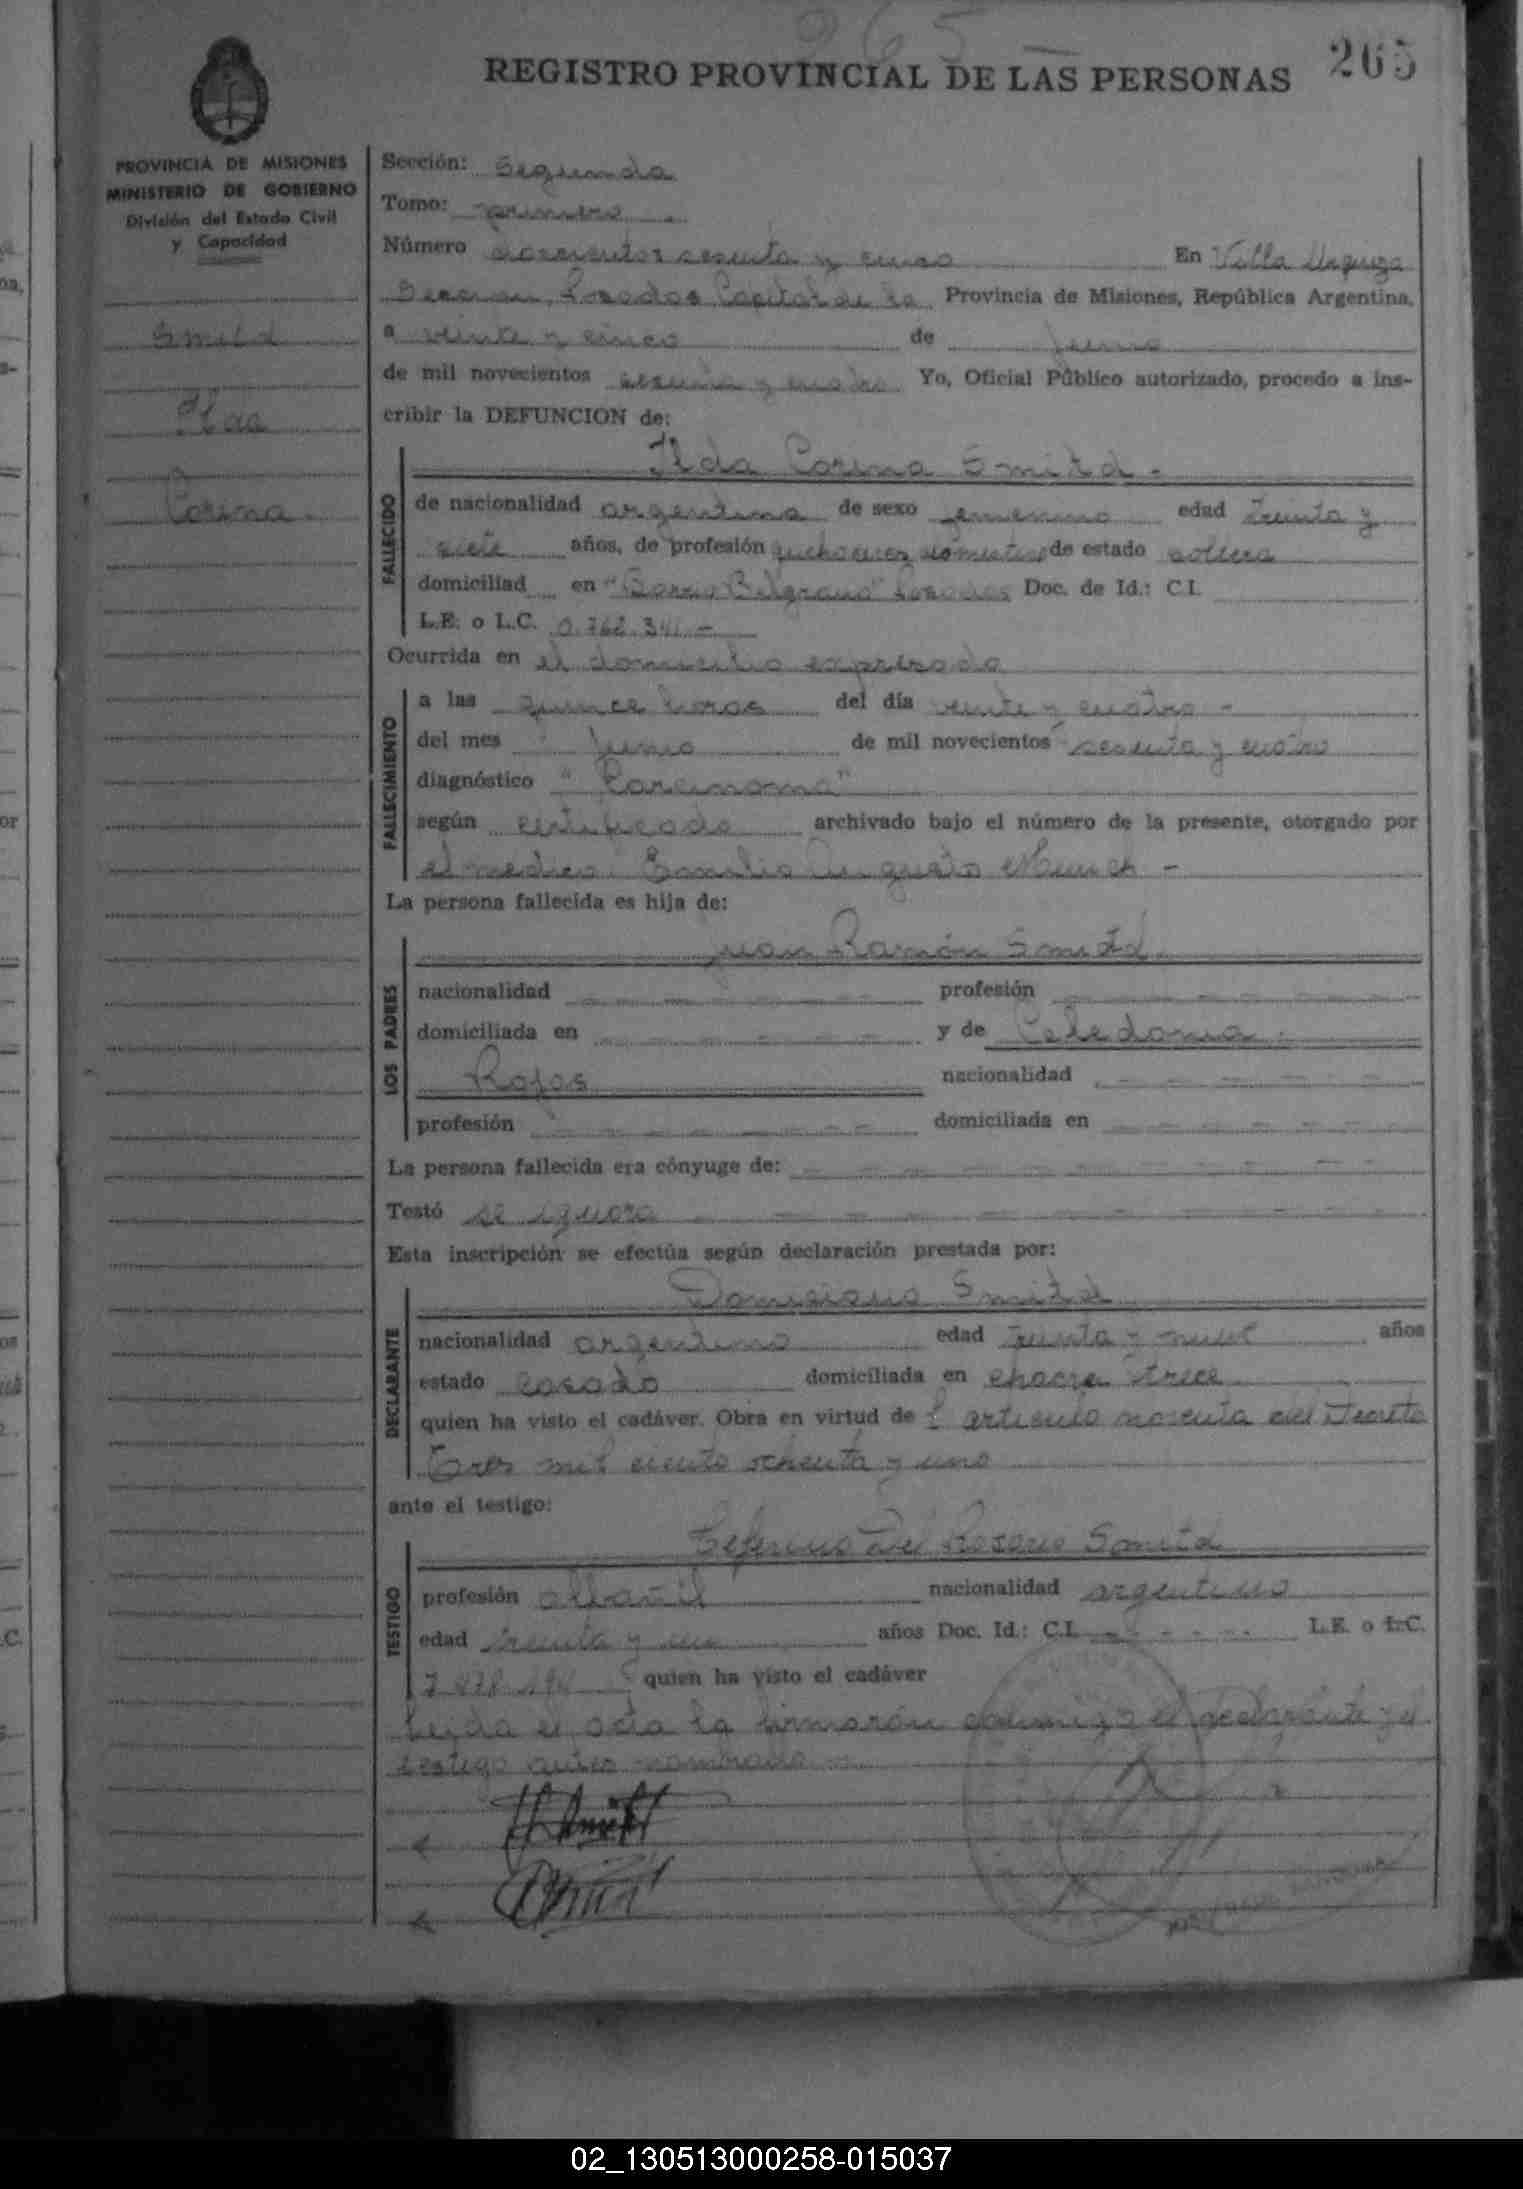 265
REGISTRO PROVINCIAL DE LAS PERSONAS 265
PROVINCIA DE MISIONES
MINISTERIO DE GOBIERNO
División del Estado Civil
y Capacidad
Smitd
Ilda
Corina
Sección: Segunda
Tomo: primero
Número doscientos sesenta y cinco En Villa Urquiza
Posadas Capital de la Provincia de Misiones, República Argentina,
a veinte y cinco de Junio
de mil novecientos sesenta y cuatro Yo, Oficial Público autorizado, procedo a ins-
cribir la DEFUNCION de:
Ilda Corina Smitd.-
FALLECIDO
de nacionalidad argentina de sexo femenino edad treinta y
siete años, de profesión quehaceres domesticos de estado soltera
domiciliad en "Barrio Belgrano" Posadas Doc. de Id.: C.I.
L.E. o L.C. 0.762.341.-
Ocurrida en el domicilio expresado
FALLECIMIENTO
a las quince horas del día veinte y cuatro -
del mes Junio de mil novecientos sesenta y cuatro
diagnóstico "Carcinoma"
según certificado archivado bajo el número de la presente, otorgado por
el medico Emilio Augusto Munch -
La persona fallecida es hija de:
LOS PADRES
Juan Ramón Smitd
nacionalidad profesión
domiciliada en y de Celedonia
Rojas nacionalidad
profesión domiciliada en
La persona fallecida era cónyuge de:
Testó se ignora
Esta inscripción se efectúa según declaración prestada por:
DECLARANTE
Donisiano Smitd
nacionalidad argentino edad treinta y nueve años
estado casado domiciliada en chacra trece
quien ha visto el cadáver. Obra en virtud del articulo noventa del Decreto
Tres mil ciento ochenta y uno
ante el testigo:
TESTIGO
Ceferino Del Rosario Smitd
profesión albañil nacionalidad argentino
edad treinta y un años Doc. Id.: C.I. L.E. o L.C.
quien ha visto el cadáver
Leida el acta la firmarón conmigo el declarante y el
testigo antes nombrado
02_130513000258-015037